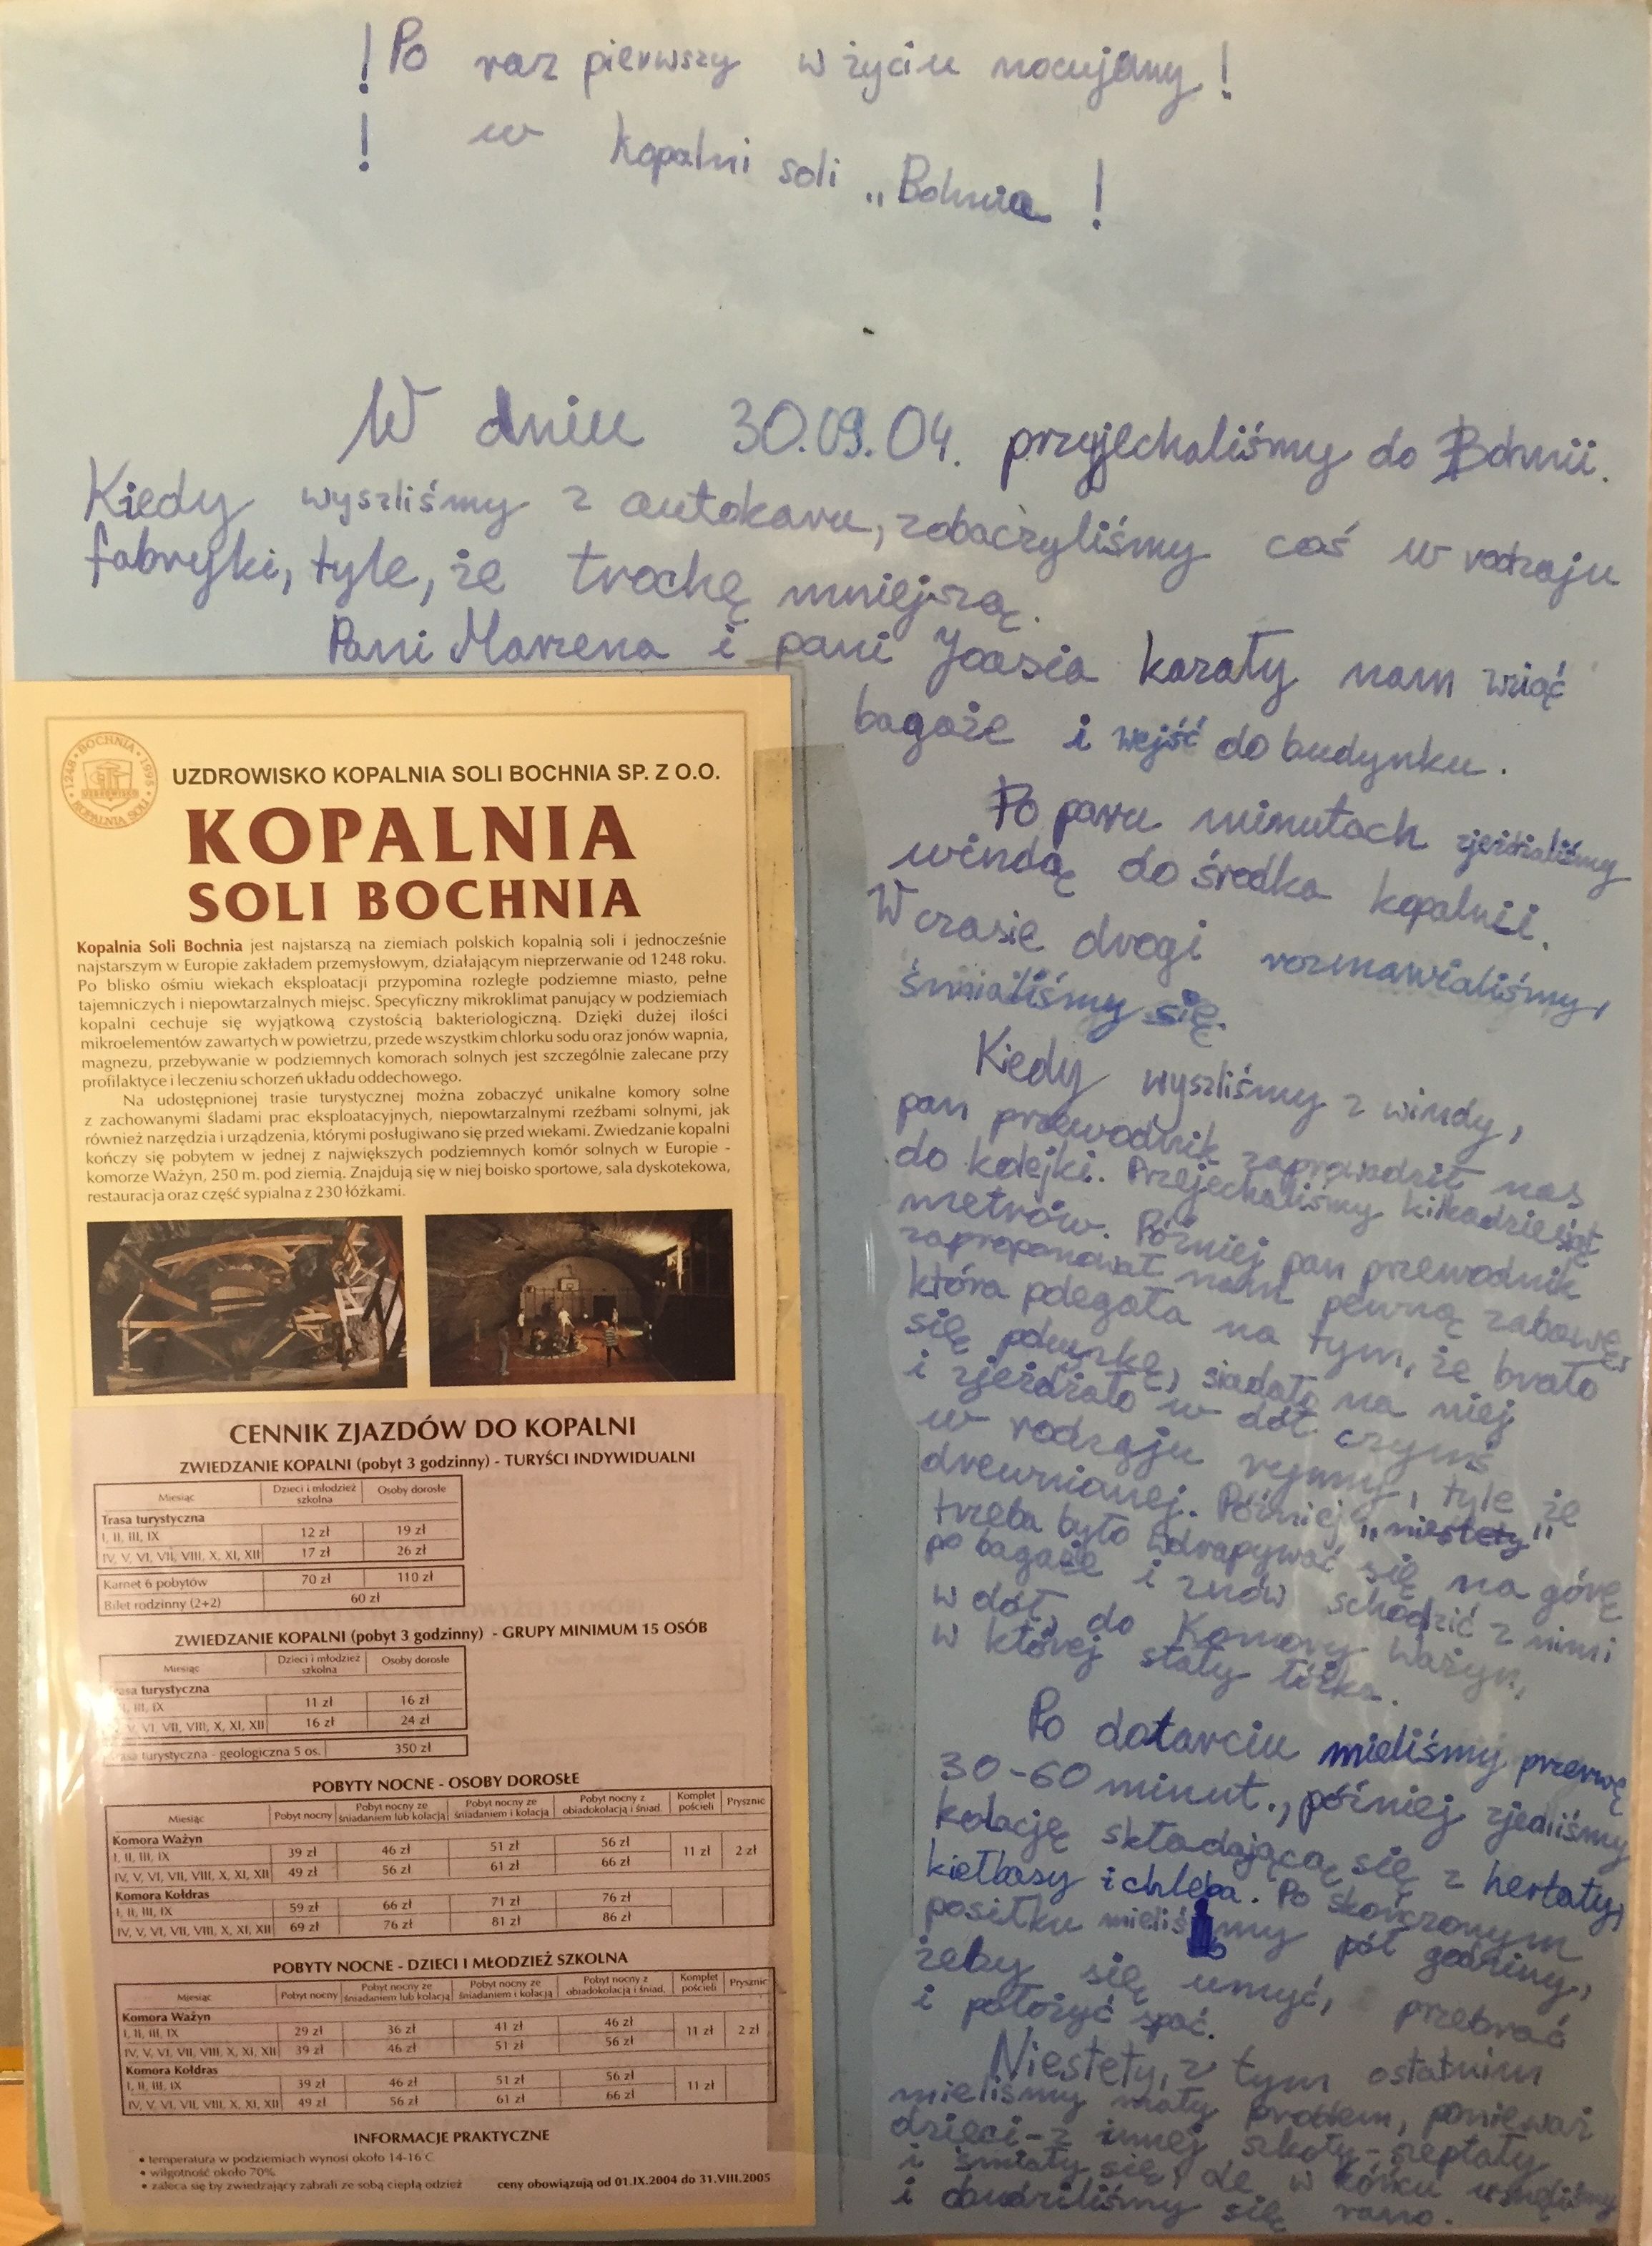 ! Po raz pierwszy w życiu nocujemy !
! w kopalni soli „Bohnia !
W dniu 30.09.04. przyjechaliśmy do Bohnii.
Kiedy wyszliśmy z autokaru, zobaczyliśmy coś w rodzaju
fabryki, tyle, że trochę mniejszą.
Pani Marzena i pani Joasia kazały nam wziąć
bagaże i wejść do budynku.
Po paru minutach zjeżdżaliśmy
windą do środka kopalnii.
W czasie drogi rozmawialiśmy,
śmialiśmy się.
Kiedy wyszliśmy z windy,
pan przewodnik zaprowadził nas
do kolejki. Przejechaliśmy kilkadziesiąt
metrów. Później pan przewodnik
zaproponował nam pewną zabawę,
która polegała na tym, że brało
się poduszkę, siadało na niej
i zjeżdżało w dół czymś
w rodzaju rynny, tyle że
drewnianej. Później „niestety"
trzeba było wdrapywać się na górę
po bagaże i znów schodzić z nimi
w dół, do Komory Ważyn,
w której stały łóżka.
Po dotarciu mieliśmy przerwę
30-60 minut., później zjedliśmy
kolację składającą się z herbaty,
kiełbasy i chleba. Po skończonym
posiłku mieliśmy pół godziny,
żeby się umyć, przebrać
i położyć spać.
Niestety, z tym ostatnim
mieliśmy mały problem, ponieważ
dzieci-z innej szkoły-szeptały
i śmiały się, ale w końcu usnęliśmy
i obudziliśmy się rano.
BOCHNIA
1248 1995
KOPALNIA SOLI
UZDROWISKO KOPALNIA SOLI BOCHNIA SP. Z O.O.
KOPALNIA
SOLI BOCHNIA
Kopalnia Soli Bochnia jest najstarszą na ziemiach polskich kopalnią soli i jednocześnie
najstarszym w Europie zakładem przemysłowym, działającym nieprzerwanie od 1248 roku.
Po blisko ośmiu wiekach eksploatacji przypomina rozległe podziemne miasto, pełne
tajemniczych i niepowtarzalnych miejsc. Specyficzny mikroklimat panujący w podziemiach
kopalni cechuje się wyjątkową czystością bakteriologiczną. Dzięki dużej ilości
mikroelementów zawartych w powietrzu, przede wszystkim chlorku sodu oraz jonów wapnia,
magnezu, przebywanie w podziemnych komorach solnych jest szczególnie zalecane przy
profilaktyce i leczeniu schorzeń układu oddechowego.
Na udostępnionej trasie turystycznej można zobaczyć unikalne komory solne
z zachowanymi śladami prac eksploatacyjnych, niepowtarzalnymi rzeźbami solnymi, jak
również narzędzia i urządzenia, którymi posługiwano się przed wiekami. Zwiedzanie kopalni
kończy się pobytem w jednej z największych podziemnych komór solnych w Europie -
komorze Ważyn, 250 m. pod ziemią. Znajdują się w niej boisko sportowe, sala dyskotekowa,
restauracja oraz część sypialna z 230 łóżkami.
CENNIK ZJAZDÓW DO KOPALNI
ZWIEDZANIE KOPALNI (pobyt 3 godzinny) - TURYŚCI INDYWIDUALNI
Miesiąc Dzieci i młodzież szkolna Osoby dorosłe
Trasa turystyczna
I, II, III, IX 12 zł 19 zł
IV, V, VI, VII, VIII, X, XI, XII 17 zł 26 zł
Karnet 6 pobytów 70 zł 110 zł
Bilet rodzinny (2+2) 60 zł
ZWIEDZANIE KOPALNI (pobyt 3 godzinny) - GRUPY MINIMUM 15 OSÓB
Miesiąc Dzieci i młodzież szkolna Osoby dorosłe
rasa turystyczna
I, III, IX 11 zł 16 zł
V, VI, VII, VIII, X, XI, XII 16 zł 24 zł
rasa turystyczna - geologiczna 5 os. 350 zł
POBYTY NOCNE - OSOBY DOROSŁE
Miesiąc Pobyt nocny Pobyt nocny ze śniadaniem lub kolacją Pobyt nocny ze śniadaniem i kolacją Pobyt nocny z obiadokolacją i śniad. Komplet pościeli Prysznic
Komora Ważyn
I, II, III, IX 39 zł 46 zł 51 zł 56 zł 11 zł 2 zł
IV, V, VI, VII, VIII, X, XI, XII 49 zł 56 zł 61 zł 66 zł
Komora Kołdras
I, II, III, IX 59 zł 66 zł 71 zł 76 zł
IV, V, VI, VII, VIII, X, XI, XII 69 zł 76 zł 81 zł 86 zł
POBYTY NOCNE - DZIECI I MŁODZIEŻ SZKOLNA
Miesiąc Pobyt nocny Pobyt nocny ze śniadaniem lub kolacją Pobyt nocny ze śniadaniem i kolacją Pobyt nocny z obiadokolacją i śniad. Komplet pościeli Prysznic
Komora Ważyn
I, II, III, IX 29 zł 36 zł 41 zł 46 zł 11 zł 2 zł
IV, V, VI, VII, VIII, X, XI, XII 39 zł 46 zł 51 zł 56 zł
Komora Kołdras
I, II, III, IX 39 zł 46 zł 51 zł 56 zł 11 zł
IV, V, VI, VII, VIII, X, XI, XII 49 zł 56 zł 61 zł 66 zł
INFORMACJE PRAKTYCZNE
• temperatura w podziemiach wynosi około 14-16 C
• wilgotność około 70%
• zaleca się by zwiedzający zabrali ze sobą ciepłą odzież ceny obowiązują od 01.IX.2004 do 31.VIII.2005